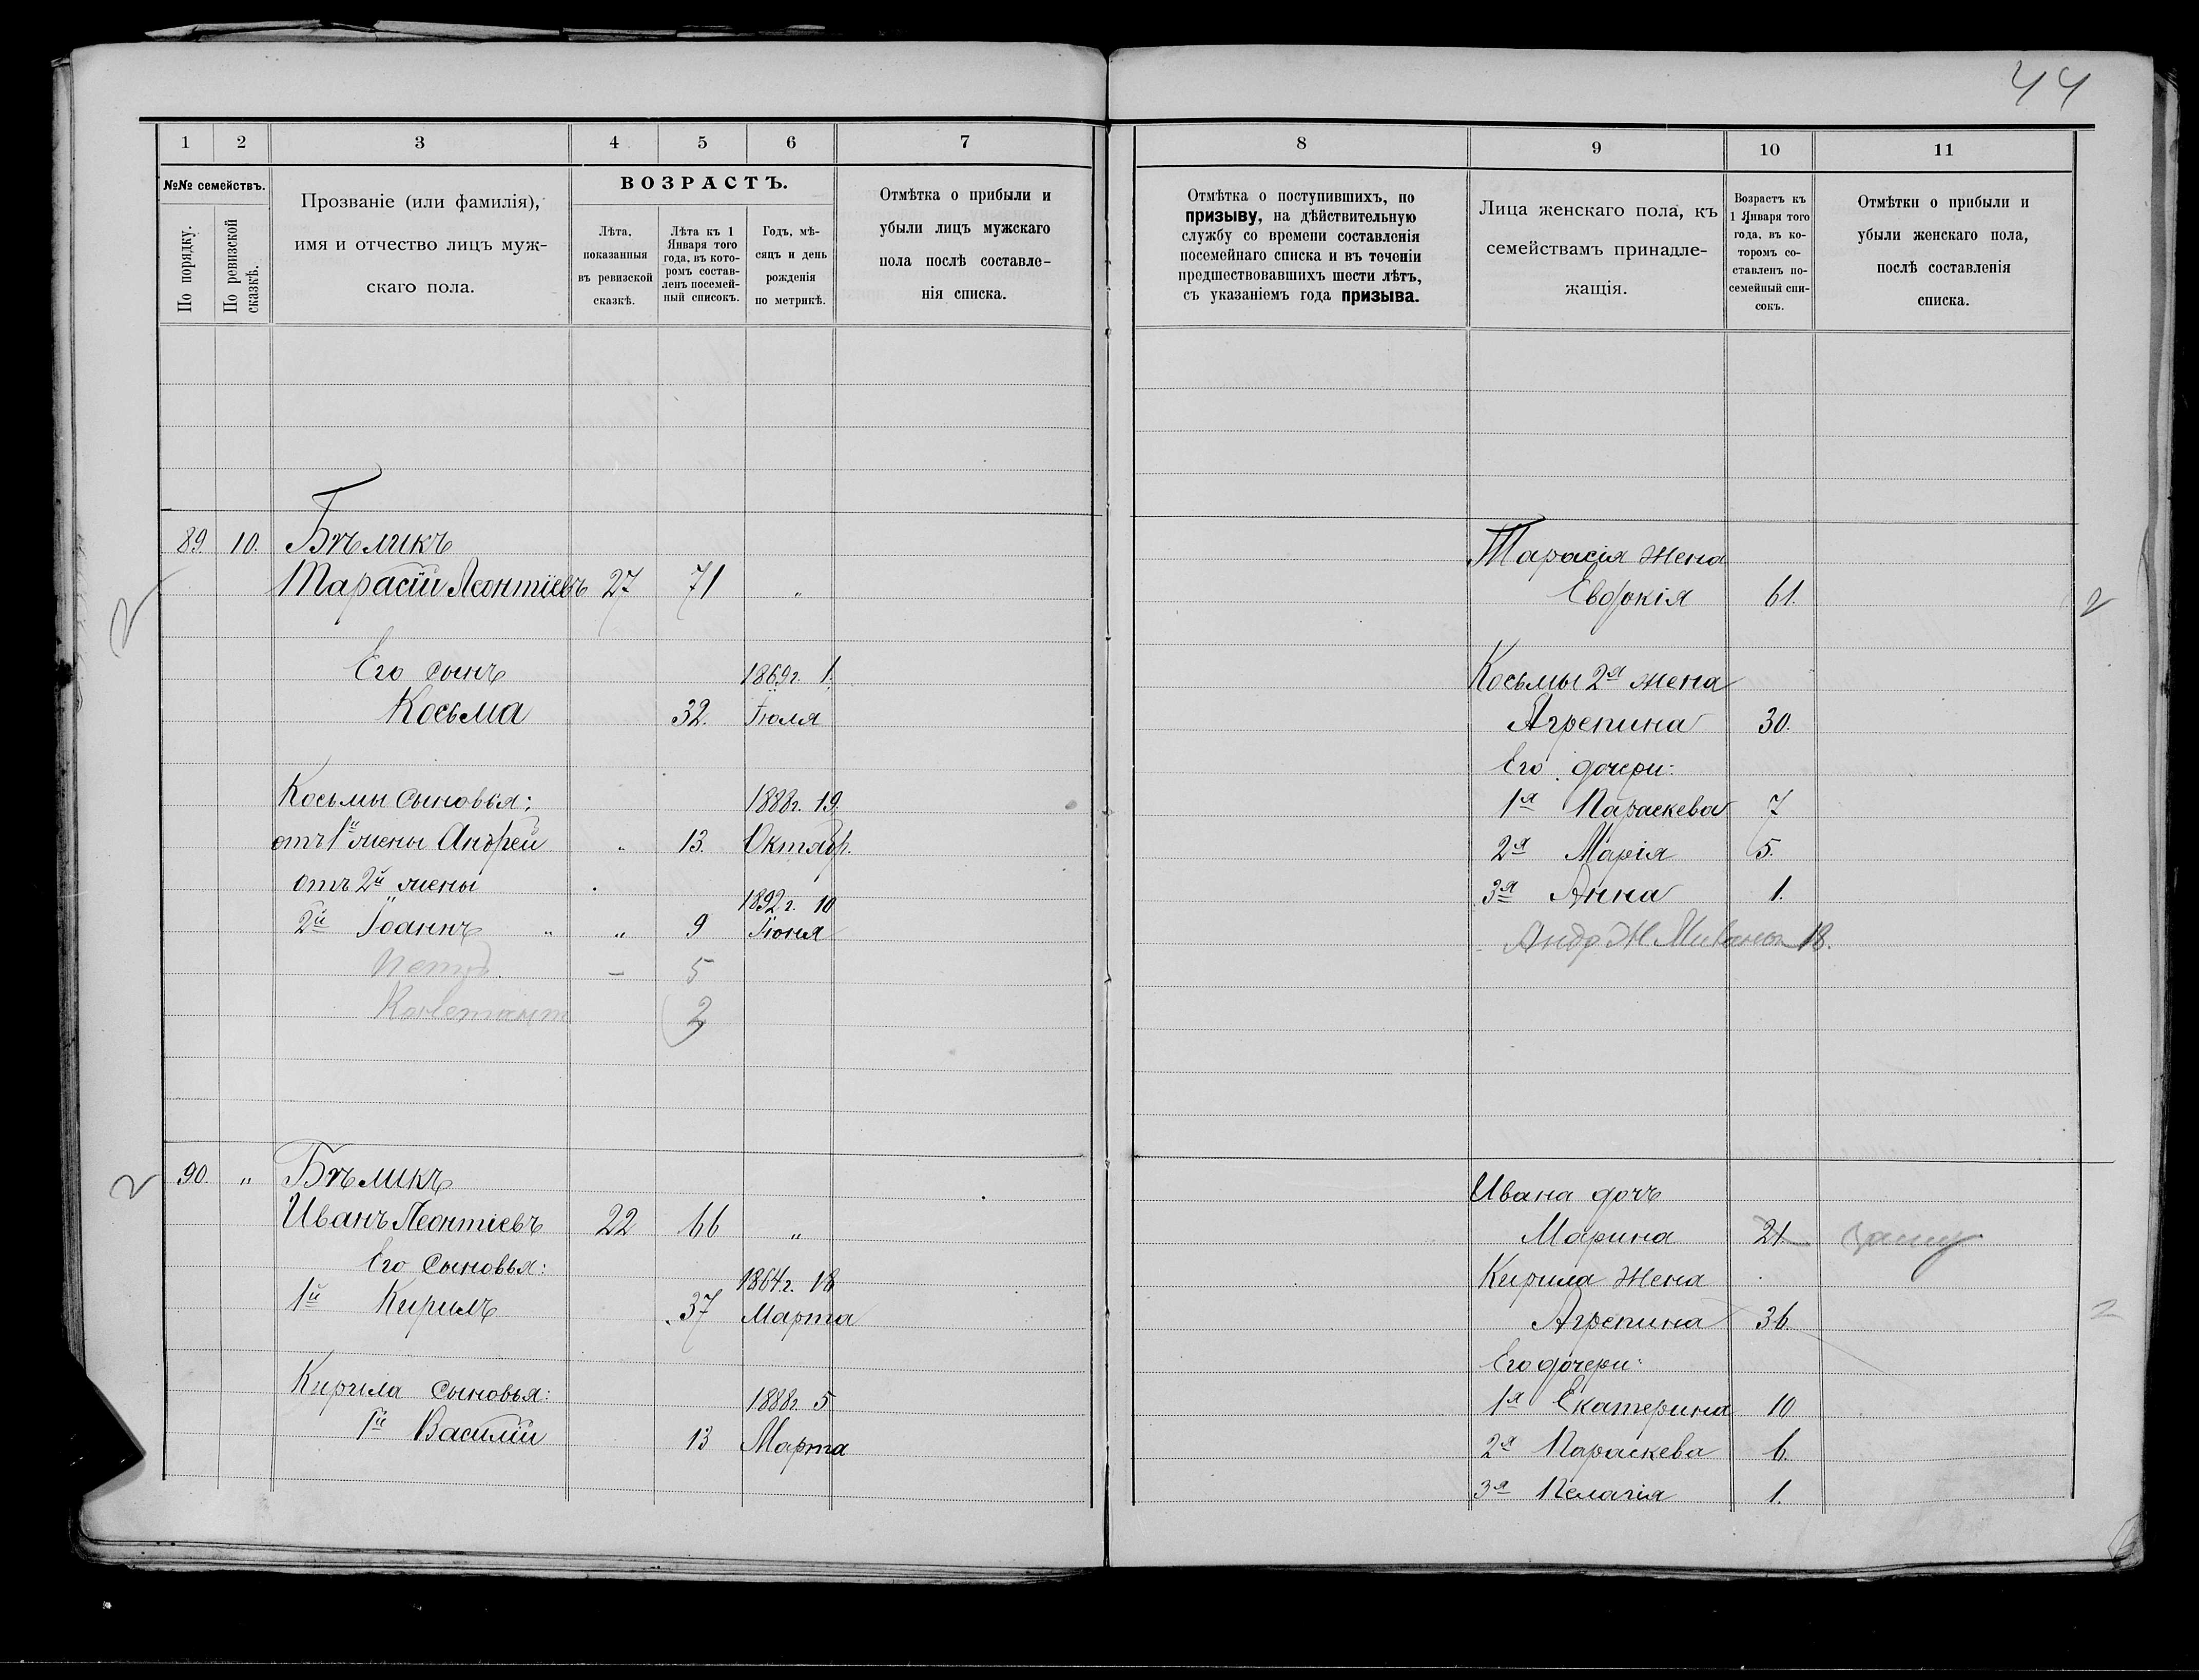 44
1 2 3 4 5 6 7
№№ семействъ.
По порядку.
По ревизской сказкѣ.
Прозваніе (или фамилія),
имя и отчество лицъ муж-
скаго пола.
ВОЗРАСТЪ.
Лѣта,
показанныя
въ ревизской
сказкѣ.
Лѣта къ 1
Января того
года, въ кото-
ромъ состав-
ленъ посемей-
ный списокъ.
Годъ, мѣ-
сяцъ и день
рожденія
по метрикѣ.
Отмѣтка о прибыли и
убыли лицъ мужскаго
пола послѣ составле-
нія списка.
89 10. Бѣликъ
Тарасій Леонтіевъ 27 71 „
2
Его сынъ 1869г. 1.
Косьма 32. Іюля
Косьмы сыновья: 1888г. 19.
отъ 1й жены Андрей „ 13. Октябр.
отъ 2й жены 1892г. 10
2й Іоаннъ „ „ 9 Іюня
Петръ. – 5
Констант 2
2 90. „ Бѣликъ
Иванъ Леонтіевъ 22 66 „
Его сыновья: 1864г. 18
1й Кирилъ 37 Марта
Кирила сыновья: 1888г. 5
1й Василій 13 Марта
8 9 10 11
Отмѣтка о поступившихъ, по
призыву, на дѣйствительную
службу со времени составленія
посемейнаго списка и въ теченіи
предшествовавшихъ шести лѣтъ,
съ указаніемъ года призыва.
Лица женскаго пола, къ
семействамъ принадле-
жащія.
Возрастъ къ
1 Января того
года, въ ко-
торомъ со-
ставленъ по-
семейный спи-
сокъ.
Отмѣтки о прибыли и
убыли женскаго пола,
послѣ составленія
списка.
Тарасія жена
Евдокія 61. 2
Косьмы 2я жена
Агрепина 30.
Его дочери:
1я Параскева 7
2я Марія 5.
3я Анна 1.
Андр Ж 18.
Ивана дочь
Марина 21
Кирила жена
Агрепина 36. 2
Его дочери:
1я Екатерина 10
2я Параскева 6.
3я Пелагія 1.